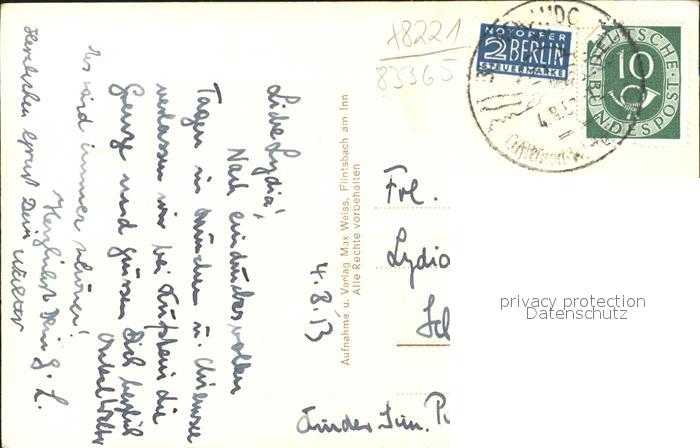 Liebe Lydia!
Nach eindrucksvollen
Tagen in München u. Chiemsee
verlassen wir bei Kufstein die
Grenze und grüssen Dich herzlich
Onkel Walter
Es wird immer schöner!
Herzlichst Dein
Herzlichen Gruß Dein Walter
4.8.53
Aufnahme u. Verlag Max Weiss, Flintsbach am Inn
Alle Rechte vorbehalten
+8221
83365
NOTOPFER
2 BERLIN
STEUERMARKE
DEUTSCHE
BUNDESPOST
10
Frl.
Lydia
privacy protection
Datenschutz